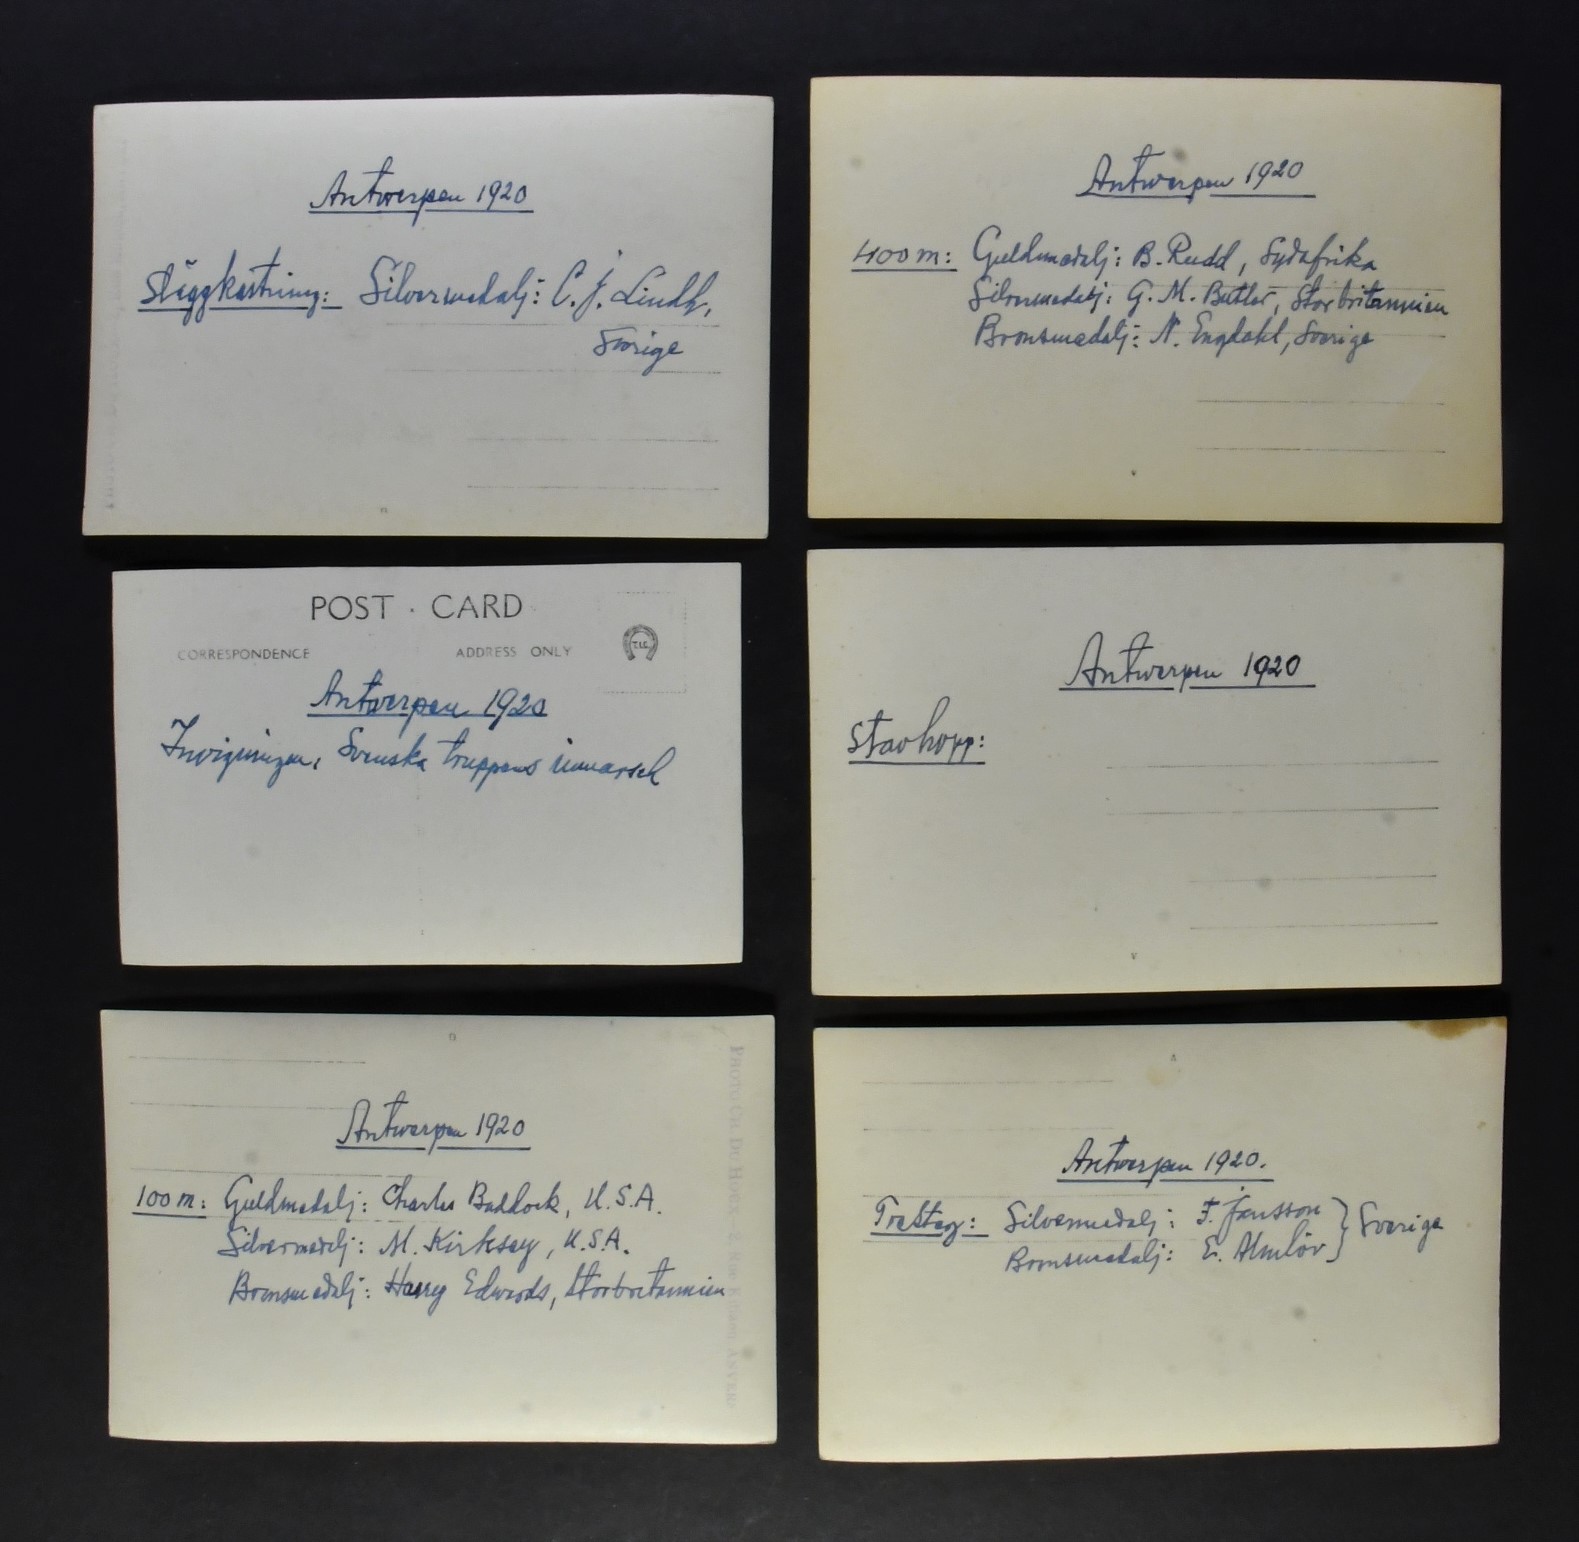 Antwerpen 1920
Släggkastning: Silvermedalj: C. J. Lindh,
Sverige
Antwerpen 1920
400 m: Guldmedalj: B. Rudd, Sydafrika
Silvermedalj: G. M. Butler, Storbritannien
Bronsmedalj: N. Engdahl, Sverige
POST · CARD
CORRESPONDENCE
ADDRESS ONLY
T.I.C.
Antwerpen 1920
Invigningen. Svenska truppens inmarsch
Antwerpen 1920
Stavhopp:
Antwerpen 1920
100 m: Guldmedalj: Charles Paddock, U.S.A.
Silvermedalj: M. Kirksey, U.S.A.
Bronsmedalj: Harry Edwards, Storbritannien
PHOTO CH. DU HOUX ANVERS
Antwerpen 1920.
Tresteg: Silvermedalj: F. Jansson } Sverige
Bronsmedalj: E. Almlöv